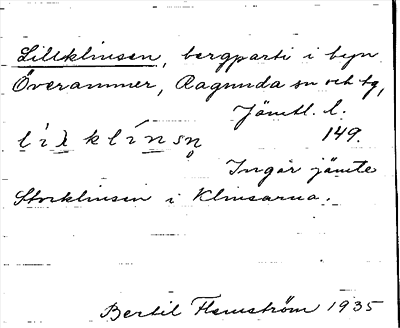 Lillklinsen, bergparti i byn
Överammer, Ragunda sn och tg,
Jämtl. l.
149.
Ingår jämte
Storklinsen i Klinsarna.
Bertil Flemström 1935